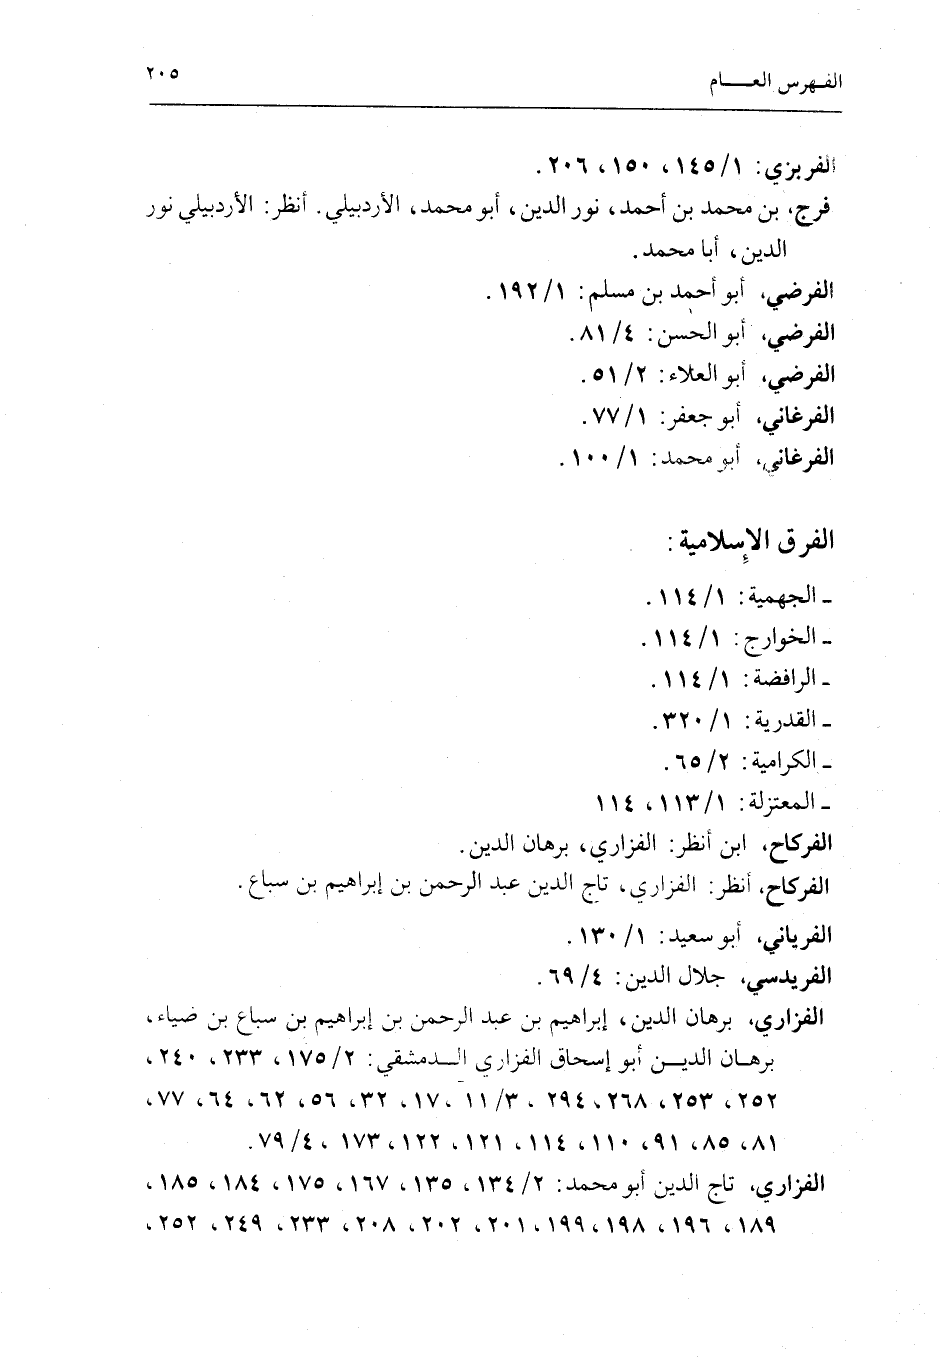 الفهرس العام ٢٠٥
الفربزي: ١/ ١٤٥، ١٥٠، ٢٠٦.
فرج، بن محمد بن أحمد، نور الدين، أبو محمد، الأردبيلي. أنظر: الأردبيلي نور
الدين، أبا محمد.
الفرضي، أبو أحمد بن مسلم: ١/ ١٩٢.
الفرضي، أبو الحسن: ٤/ ٨١.
الفرضي، أبو العلاء: ٢/ ٥١.
الفرغاني، أبو جعفر: ١/ ٧٧.
الفرغاني، أبو محمد: ١/ ١٠٠.
الفرق الإسلامية:
ـ الجهمية: ١/ ١١٤.
ـ الخوارج: ١/ ١١٤.
ـ الرافضة: ١/ ١١٤.
ـ القدرية: ١/ ٣٢٠.
ـ الكرامية: ٢/ ٦٥.
ـ المعتزلة: ١/ ١١٣، ١١٤
الفركاح، ابن أنظر: الفزاري، برهان الدين.
الفركاح، أنظر: الفزاري، تاج الدين عبد الرحمن بن إبراهيم بن سباع.
الفرياني، أبو سعيد: ١/ ١٣٠.
الفريدسي، جلال الدين: ٤/ ٦٩.
الفزاري، برهان الدين، إبراهيم بن عبد الرحمن بن إبراهيم بن سباع بن ضياء،
برهان الدين أبو إسحاق الفزاري الدمشقي: ٢/ ١٧٥، ٢٣٣، ٢٤٠،
٢٥٢، ٢٥٣، ٢٦٨، ٢٩٤، ٣/ ١١، ١٧، ٣٢، ٥٦، ٦٢، ٦٤، ٧٧،
٨١، ٨٥، ٩١، ١١٠، ١١٤، ١٢١، ١٢٢، ١٧٣، ٤/ ٧٩.
الفزاري، تاج الدين أبو محمد: ٢/ ١٣٤، ١٣٥، ١٦٧، ١٧٥، ١٨٤، ١٨٥،
١٨٩، ١٩٦، ١٩٨، ١٩٩، ٢٠١، ٢٠٢، ٢٠٨، ٢٣٣، ٢٤٩، ٢٥٢،